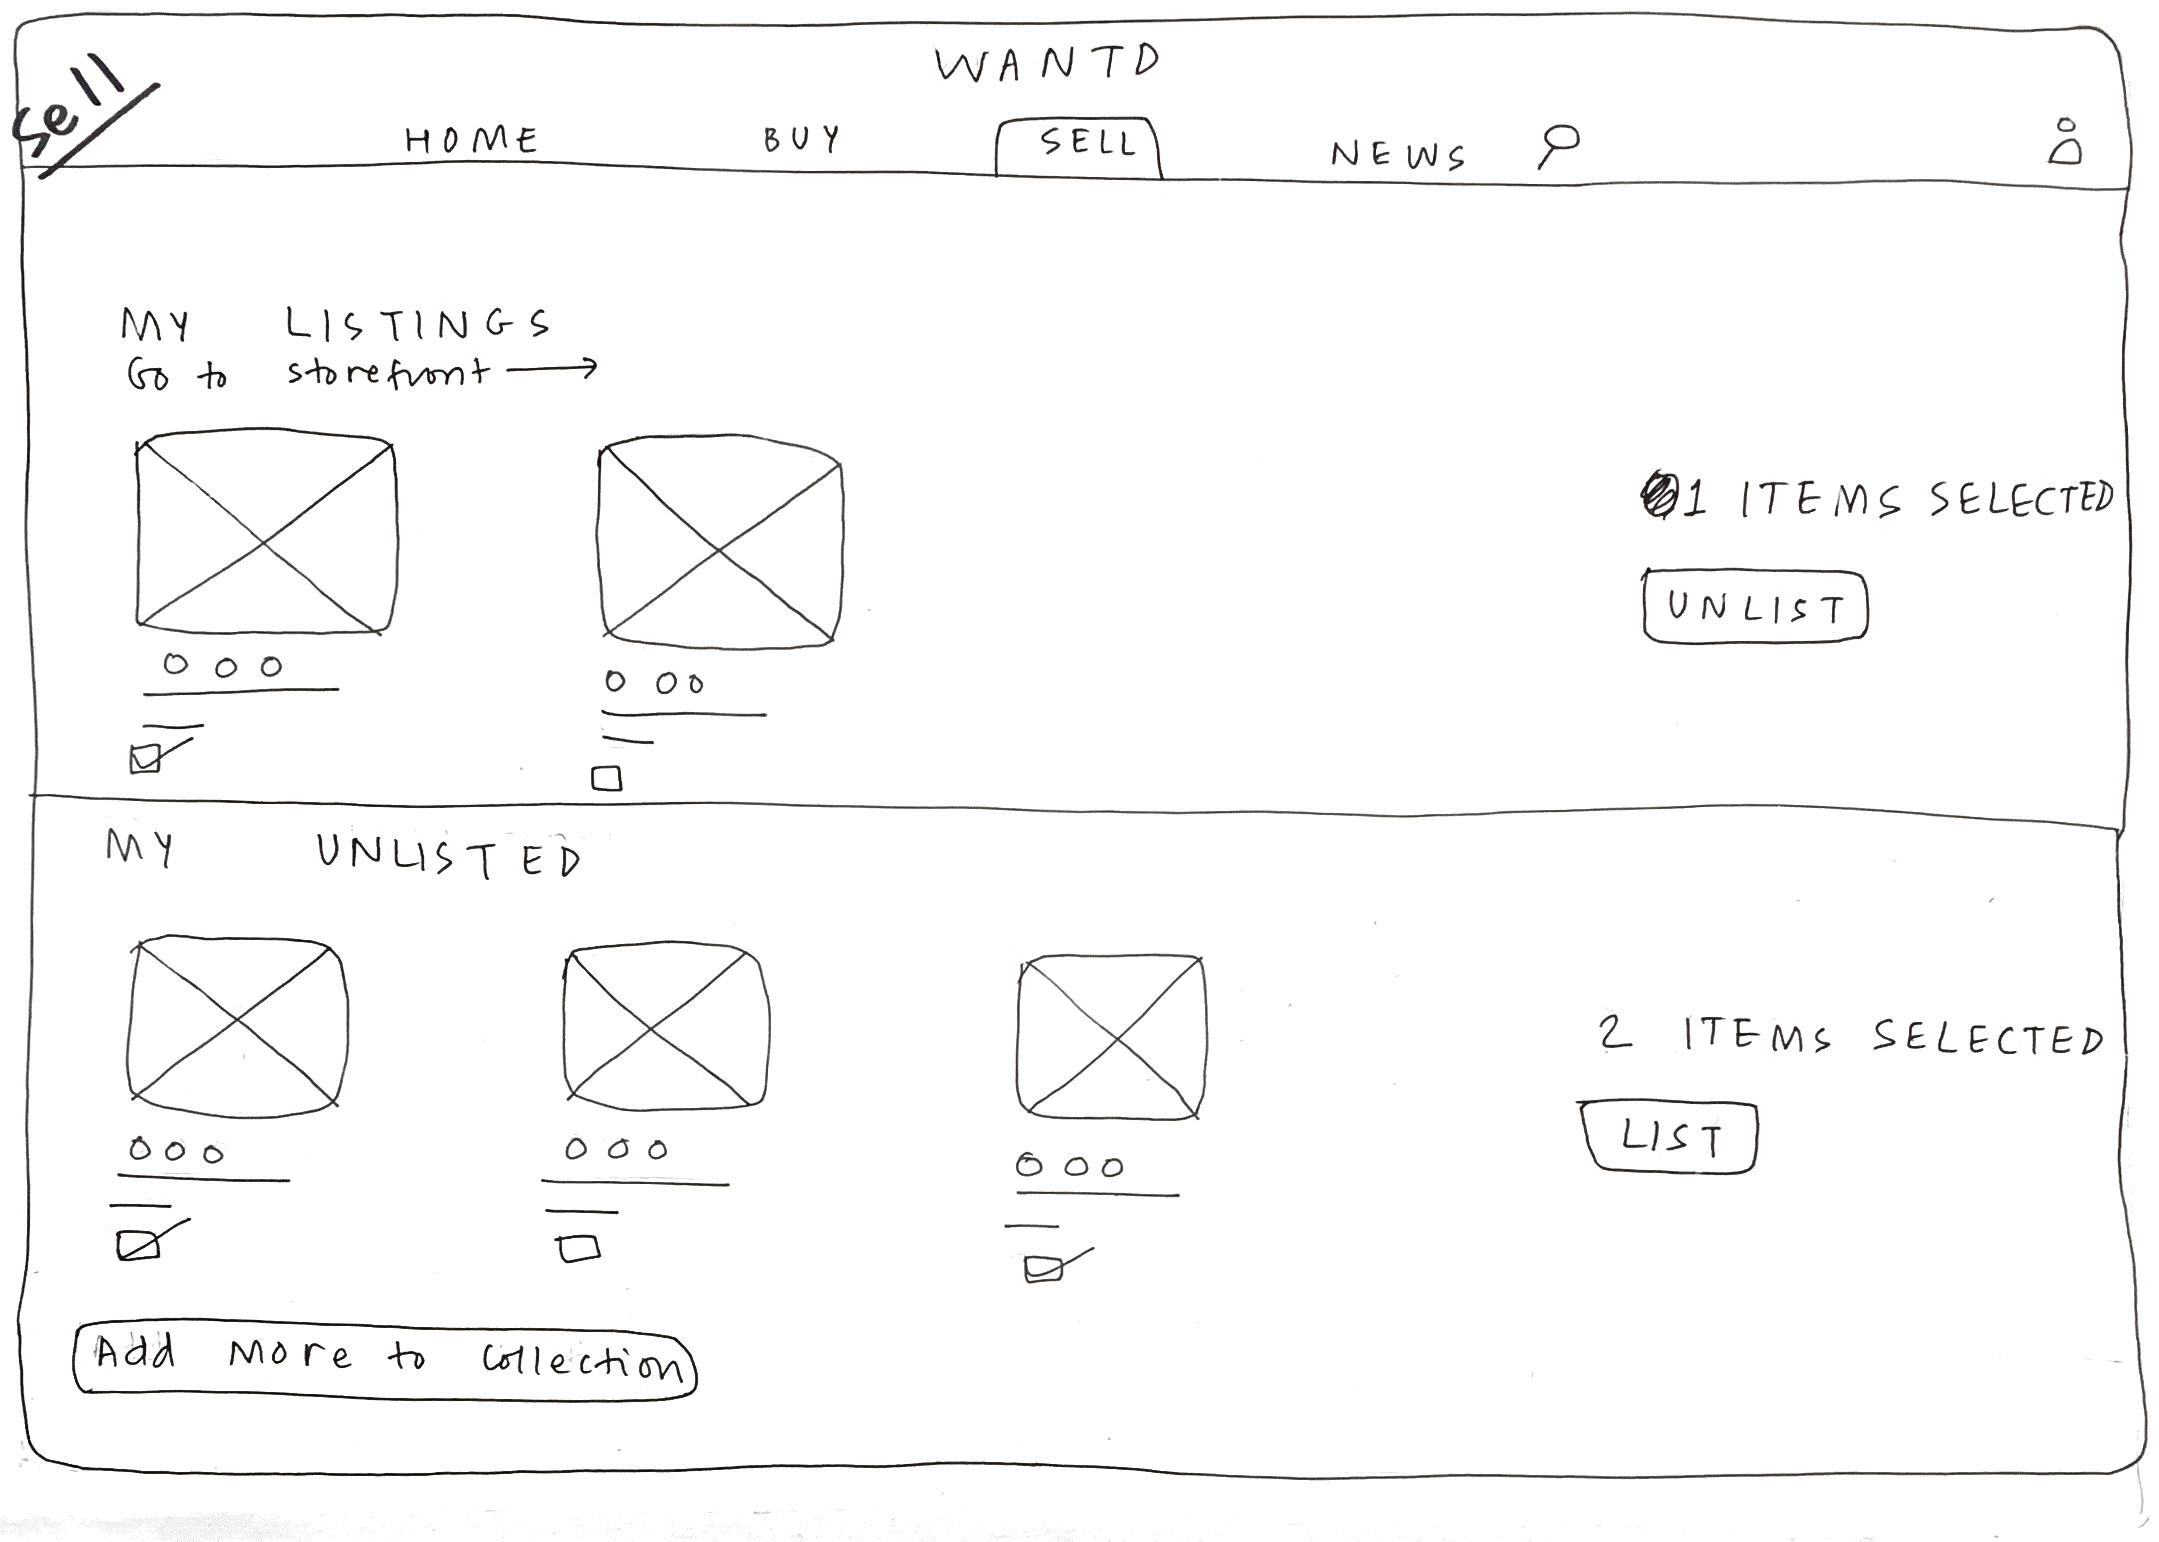 WANTD
Sell
HOME BUY SELL NEWS
MY LISTINGS
Go to storefront
1 ITEMS SELECTED
UNLIST
MY UNLISTED
2 ITEMS SELECTED
LIST
Add More to collection